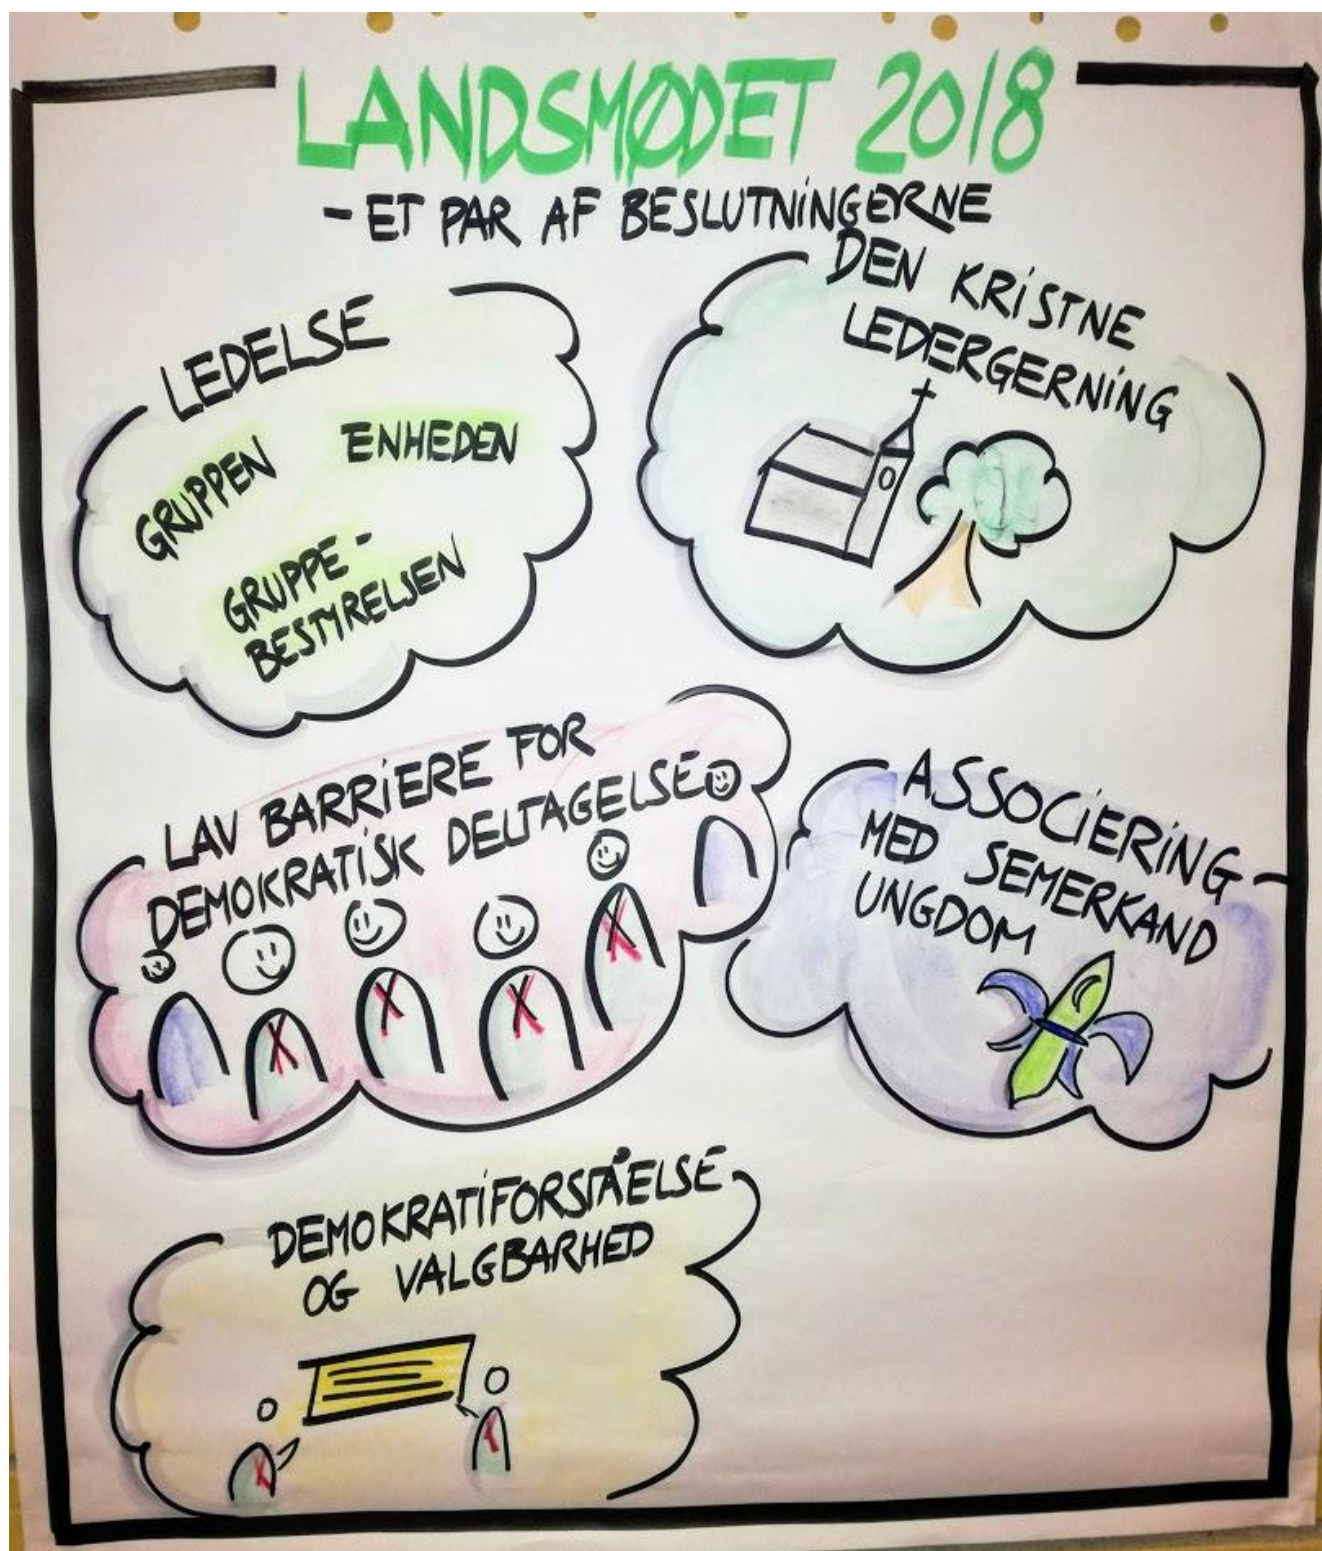 LANDSMØDET 2018
- ET PAR AF BESLUTNINGERNE
LEDELSE
GRUPPEN
ENHEDEN
GRUPPE-
BESTYRELSEN
DEN KRISTNE
LEDERGERNING
LAV BARRIERE FOR
DEMOKRATISK DELTAGELSE
ASSOCIERING-
MED SEMERKAND
UNGDOM
DEMOKRATIFORSTÅELSE
OG VALGBARHED